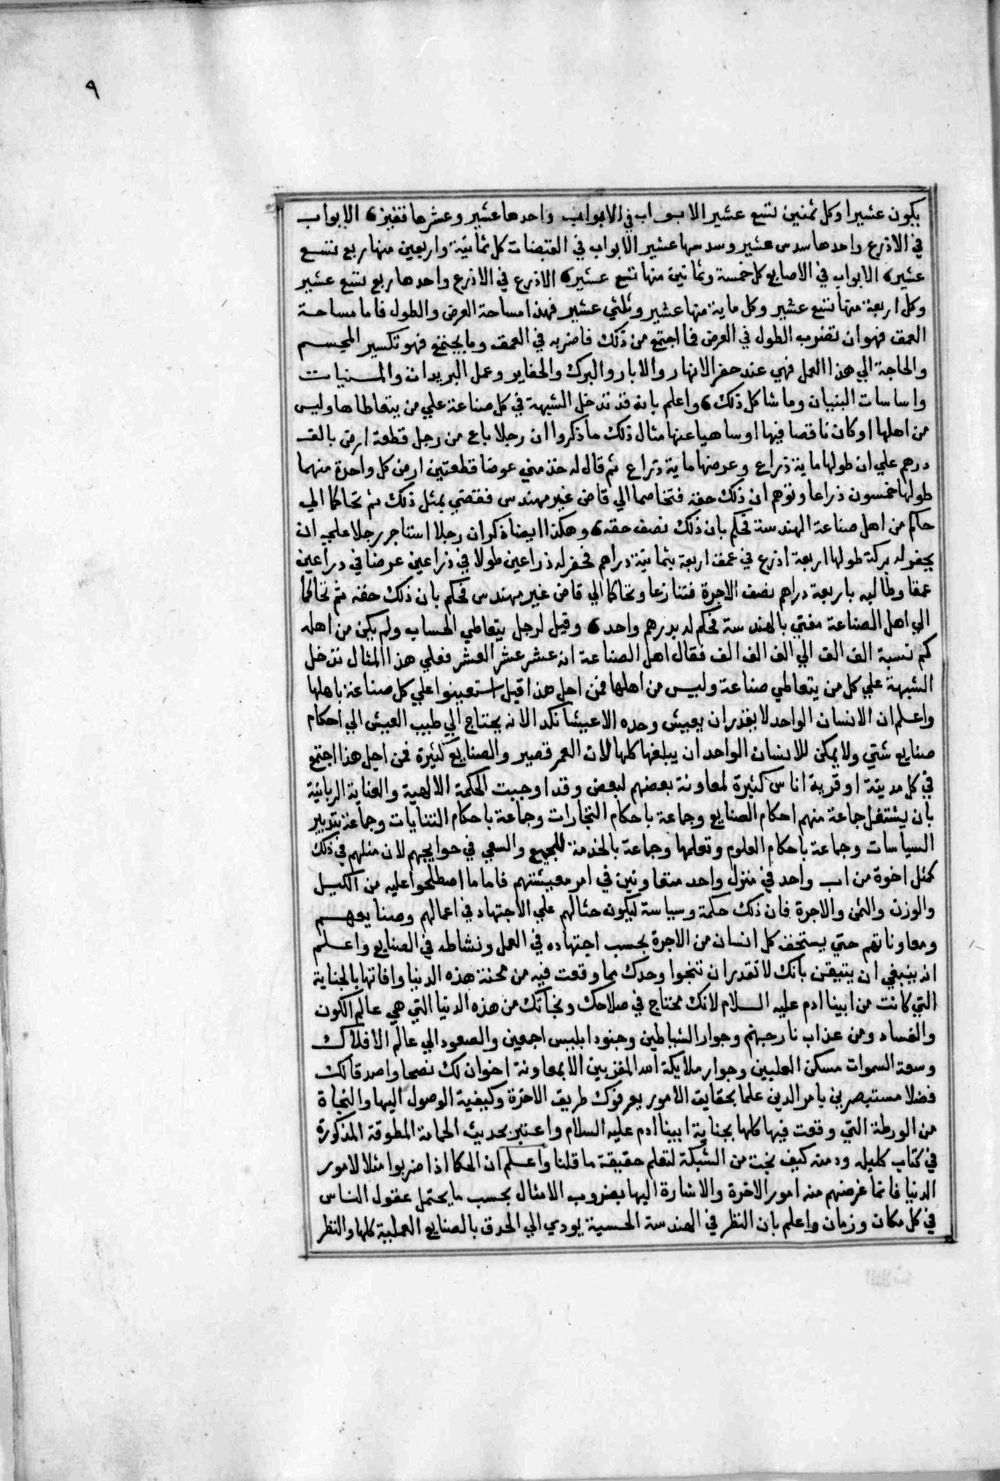 ٩
يكون عشيرا وكل ثمنين تسع عشير الابواب في الابواب واحدها عشير وعشرها قفيز ٥ الابواب
في الاذرع واحدها سدس عشير وسدسها عشير الابواب في القبضات كل ثمانية واربعين منها ربع تسع
عشير ٥ الابواب في الاصابع كل خمسة وثمانين منها تسع عشير ٥ الاذرع في الاذرع واحدها ربع تسع عشير
وكل اربعة منها تسع عشير وكل ماية منها عشير وثلثي عشير فهذا مساحة العرض والطول فاما مساحة
العمق فهو ان تضرب الطول في العرض فما اجتمع من ذلك فاضربه في العمق وما يجتمع فهو تكسير المجسم
والحاجة الي هذا العمل فهي عند حفر الانهار والابار والبرك والحفاير وعمل البريدات والمسنيات
واساسات البنيان وما شاكل ذلك ٥ واعلم بانه قد تدخل الشبهة في كل صناعة علي من يتعاطاها وليس
من اهلها او كان ناقصا فيها او ساهيا عنها مثال ذلك ما ذكروا ان رجلا باع من رجل قطعة ارض بالف
درهم علي ان طولها ماية ذراع وعرضها ماية ذراع ثم قال له خذ مني عوضا قطعتين ارض كل واحدة منهما
طولها خمسون ذراعا وتوهم ان ذلك حقه فتخاصما الي قاض غير مهندس فقضي بمثل ذلك ثم تحاكما الي
حاكم من اهل صناعة الهندسة فحكم بان ذلك نصف حقه ٥ وهكذا ايضا ذكر ان رجلا استاجر رجلا علي ان
يحفر له بركة طولها اربعة اذرع في عمق اربعة بثمانية دراهم فحفر له ذراعين طولا في ذراعين عرضا في ذراعين
عمقا وطالبه باربعة دراهم نصف الاجرة فتنازعا وتحاكما الي قاض غير مهندس فحكم بان ذلك حقه ثم تحاكما
الي اهل الصناعة مفتي بالهندسة فحكم له بدرهم واحد ٥ وقيل لرجل يتعاطي الحساب ولم يكن من اهله
كم نسبة الف الف الي الف الف الف فقال اهل الصناعة انه عشر عشر العشر فعلي هذا المثال تدخل
الشبهة علي كل من يتعاطي صناعة وليس من اهلها فمن اجل هذا قيل استعينوا علي كل صناعة باهلها
واعلم ان الانسان الواحد لا يقدر ان يعيش وحده الا عيشا نكدا لانه يحتاج الي طيب العيش الي احكام
صنايع شتي ولا يمكن للانسان الواحد ان يبلغها كلها لان العمر قصير والصنايع كثيرة فمن اجل هذا اجتمع
في كل مدينة او قرية اناس كثيرة لمعاونة بعضهم لبعض وقد اوجبت الحكمة الالهية والعناية الربانية
بان يشتغل جماعة منهم احكام الصنايع وجماعة باحكام التجارات وجماعة باحكام البنايات وجماعة بتدبير
السياسات وجماعة باحكام العلوم وتعلمها وجماعة بالخدمة للجميع والسعي في حوايجهم لان مثلهم في ذلك
كمثل اخوة من اب واحد في منزل واحد متعاونين في امر معيشتهم فاما ما اصطلحوا عليه من الكيل
والوزن والثمن والاجرة فان ذلك حكمة وسياسة ليكون حثالهم علي الاجتهاد في اعمالهم وصنايعهم
ومعاوناتهم حتي يستحق كل انسان من الاجرة بحسب اجتهاده في العمل ونشاطه في الصنايع واعلم
انه ينبغي ان يتيقن بانك لا تقدر ان تنجوا وحدك مما وقعت فيه من محنة هذه الدنيا وافاتها بالجناية
التي كانت من ابينا ادم عليه السلام لانك محتاج في صلاحك ونجاتك من هذه الدنيا التي هي عالم الكون
والفساد ومن عذاب نار جهنم وجوار الشياطين وجنود ابليس اجمعين والصعود الي عالم الافلاك
وسعة السموات مسكن العليين وجوار ملايكة الله المقربين الا بمعاونة اخوان لك نصحا واصدقا لك
فضلا مستبصرين بامر الدين علما بحقايق الامور يعرفوك طريق الاخرة وكيفية الوصول اليها والنجاة
من الورطة التي وقعت فيها كلها بجناية ابينا ادم عليه السلام واعتبر بحديث الحمامة المطوقة المذكورة
في كتاب كليله ودمنه كيف نجت من الشبكة لتعلم حقيقة ما قلنا واعلم ان الحكما اذا ضربوا مثلا لامور
الدنيا فانما غرضهم منه امور الاخرة والاشارة اليها بضروب الامثال بحسب ما يحتمل عقول الناس
في كل مكان وزمان واعلم بان النظر في الهندسة الحسية يودي الي الحدق بالصنايع العملية كلها والنظر